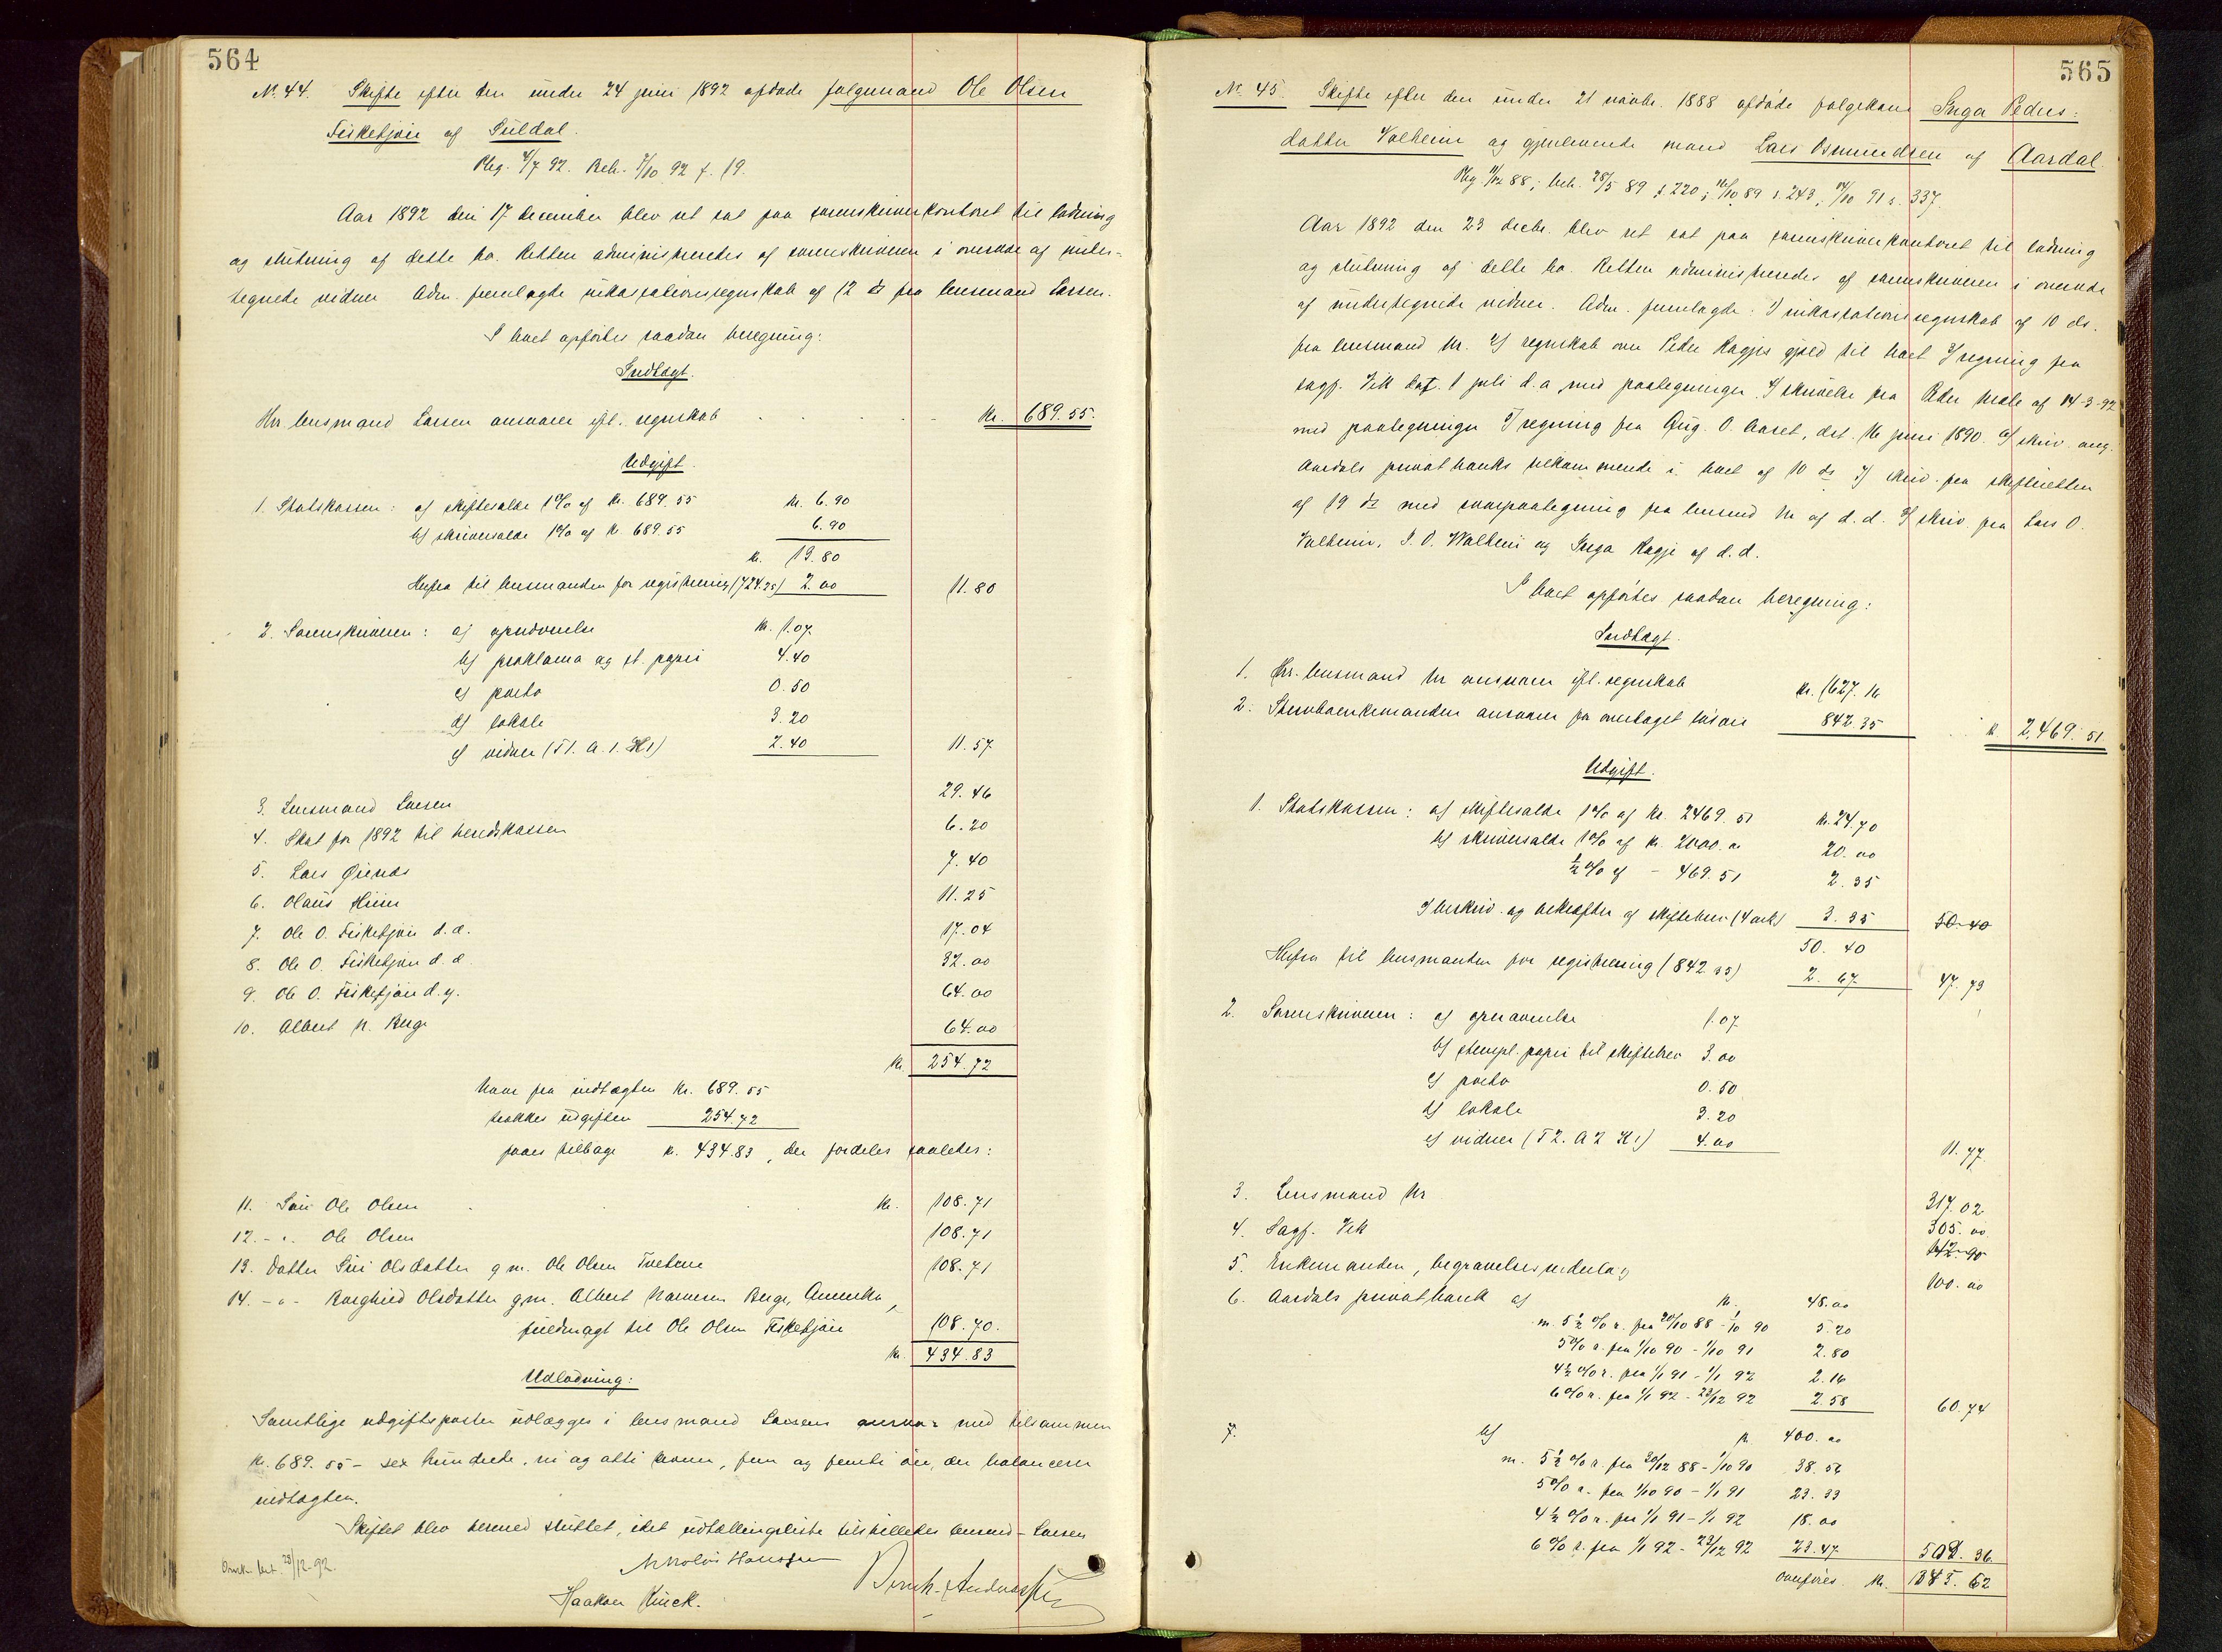 564
No. 44. Skifte efter den under 24 juni 1892 afdøde følgemand Ole Olsen
Fisketjøn af Suldal.
Reg. 4/7 92. Beh. 7/10 92 f. 19.
Aar 1892 den 17 december blev ret sat paa sorenskriverkontoret til lodning
og slutning af dette bo. Retten administreredes af sorenskriveren i overvær af under-
tegnede vidner. Adm. fremlagde inkassationsregnskab af 12 ds fra lensmand Larsen.
I boet opførtes saadan beregning:
Indtægt.
Hr. lensmand Larsen ansvarer efl. regnskab kr. 689.55.
Udgift.
1. Statskassen: a) skiftesalær 1% af kr. 689.55 kr. 6.90
b) skriversalær 1% af kr. 689.55 6.90
kr. 13.80
Herfra til lensmanden for registrering (724.25) 2.00 11.80
2. Sorenskriveren: a) opnævnelse kr. 1.07.
b) proklama og st. papir 4.40
c) porto 0.50
d) lokale 3.20
e) vidner (T1. A. 1. K1) 2.40 11.57
3. Lensmand Larsen 29.46
4. Skat for 1892 til herredskassen 6.20
5. Lars 7.40
6. Olaus 11.25
7. Ole O. Fisketjøn d.æ. 17.04
8. Ole O. Fisketjøn d.æ. 32.00
9. Ole O. Fisketjøn d.y. 64.00
10. Albert N. Berge 64.00
kr. 254.72
Naar fra indtægten kr. 689.55
trækkes udgiften 254.72
faaes tilbage kr. 434.83, der fordeles saaledes:
11. Søn Ole Olsen kr. 108.71
12. - " - Ole Olsen 108.71
13. Datter Siri Olsdatter g.m. Ole Olsen Tvetene 108.71
14. - " - Borghild Olsdatter g.m. Albert Berge, Amerika,
fuldmagt til Ole Olsen Fisketjøn 108.70.
kr. 434.83
Udlodning:
Samtlige udgiftsposter udlægges i lensmand Larsens ansvar med tilsammen
kr. 689.55 - sex hundrede, ni og otti kroner, fem og femti øre, der balancerer
indtægten.
Skiftet blev hermed sluttet, idet udtællingsliste tilstilledes lensmd. Larsen
Nikolai Hanssen
Haakon Kinck.
565
No. 45. Skifte efter den under 21 novbr. 1888 afdøde følgekone Inga Peders-
datter Valheim og gjenlevende mand Lars Osmundsen af Aardal.
Reg. 11/12 88; beh. 28/5 89 s. 220; 16/10 89 s. 243; 14/10 91 s. 337.
Aar 1892 den 23 decbr. blev ret sat paa sorenskriverkontoret til lodning
og slutning af dette bo. Retten administreredes af sorenskriveren i overvær
af undertegnede vidner. Adm. fremlagde: 1) inkassationsregnskab af 10 ds.
fra lensmand 2) regnskab over Peder gjæld til boet 3) regning fra
sagf. Vik dat. 1 juli d.a. med paategninger 4) skrivelse fra Peder af 14-3-92
med paategninger 5) regning fra Aug. O. dat. 16 juni 1890. 6) skriv. ang.
Aardals privatbanks tilkommende i boet af 10 ds 7) skriv. fra skifteretten
af 19 ds med svarpaategning fra lensmd. af d.d. 8) skriv. fra Lars O.
Valheim, I. O. Walheim og Inga af d.d.
I boet opførtes saadan beregning:
Indtægt.
1. Hr. lensmand ansvarer efl. regnskab kr. 1627.16
2. Stervboenkemanden ansvarer for overtaget løsøre 842.35 kr. 2,469.51
Udgift.
1. Statskassen: a) skiftesalær 1% af kr. 2469.51 kr. 24.70
b) skriversalær 1% af kr. 2000.00 20.00
½% af - 469.51 2.35
c) beskriv. og bekræftn. af skiftebrev (4 ark) 3.35 50.40
50.40
Herfra til lensmanden for registrering (842.35) 2.67 47.73
2. Sorenskriveren: a) opnævnelse 1.07
b) stempl. papir til skiftebrev 3.00
c) porto 0.50
d) lokale 3.20
e) vidner (T2. A2 K1) 4.00 11.77
3. Lensmand 317.02
4. Sagf. Vik 305.00
142.90
5. Enkemanden, begravelsesvederlag 100.00
6. Aardals privatbank a) kr. 48.00
m. 5½% r. fra 20/10 88 - 1/10 90 5.20
5% r. fra 1/10 90 - 1/10 91 2.80
4½% r. fra 1/1 91 - 1/1 92 2.16
6% r. fra 1/1 92 - 23/12 92 2.58 60.74
7. b) kr. 400.00
m. 5½% r. fra 30/12 88 - 1/10 90 38.56
5% r. fra 1/10 90 - 1/1 91 23.33
4½% r. fra 1/1 91 - 1/1 92 18.00
6% r. fra 1/1 92 - 23/12 92 23.47 503.36
overføres kr. 1345.62